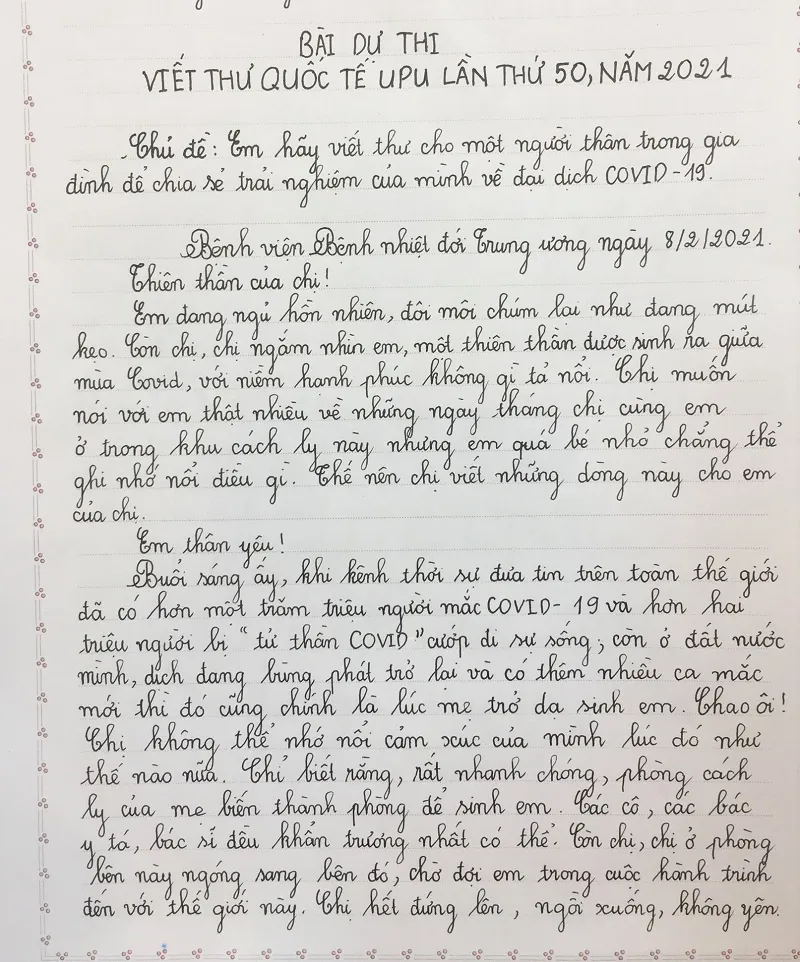 BÀI DỰ THI
VIẾT THƯ QUỐC TẾ UPU LẦN THỨ 50, NĂM 2021
Chủ đề: Em hãy viết thư cho một người thân trong gia
đình để chia sẻ trải nghiệm của mình về đại dịch COVID-19.
Bệnh viện Bệnh nhiệt đới Trung ương ngày 8/2/2021.
Thiên thần của chị!
Em đang ngủ hồn nhiên, đôi môi chúm lại như đang mút
kẹo. Còn chị, chị ngắm nhìn em, một thiên thần được sinh ra giữa
mùa Covid, với niềm hạnh phúc không gì tả nổi. Chị muốn
nói với em thật nhiều về những ngày tháng chị cùng em
ở trong khu cách ly này nhưng em quá bé nhỏ chẳng thể
ghi nhớ nổi điều gì. Thế nên chị viết những dòng này cho em
của chị.
Em thân yêu!
Buổi sáng ấy, khi kênh thời sự đưa tin trên toàn thế giới
đã có hơn một trăm triệu người mắc COVID-19 và hơn hai
triệu người bị "tử thần COVID" cướp đi sự sống; còn ở đất nước
mình, dịch đang bùng phát trở lại và có thêm nhiều ca mắc
mới thì đó cũng chính là lúc mẹ trở dạ sinh em. Chao ôi!
Chị không thể nhớ nổi cảm xúc của mình lúc đó như
thế nào nữa. Chỉ biết rằng, rất nhanh chóng, phòng cách
ly của mẹ biến thành phòng để sinh em. Các cô, các bác
y tá, bác sĩ đều khẩn trương nhất có thể. Còn chị, chị ở phòng
bên này ngóng sang bên đó, chờ đợi em trong cuộc hành trình
đến với thế giới này. Chị hết đứng lên, ngồi xuống, không yên.